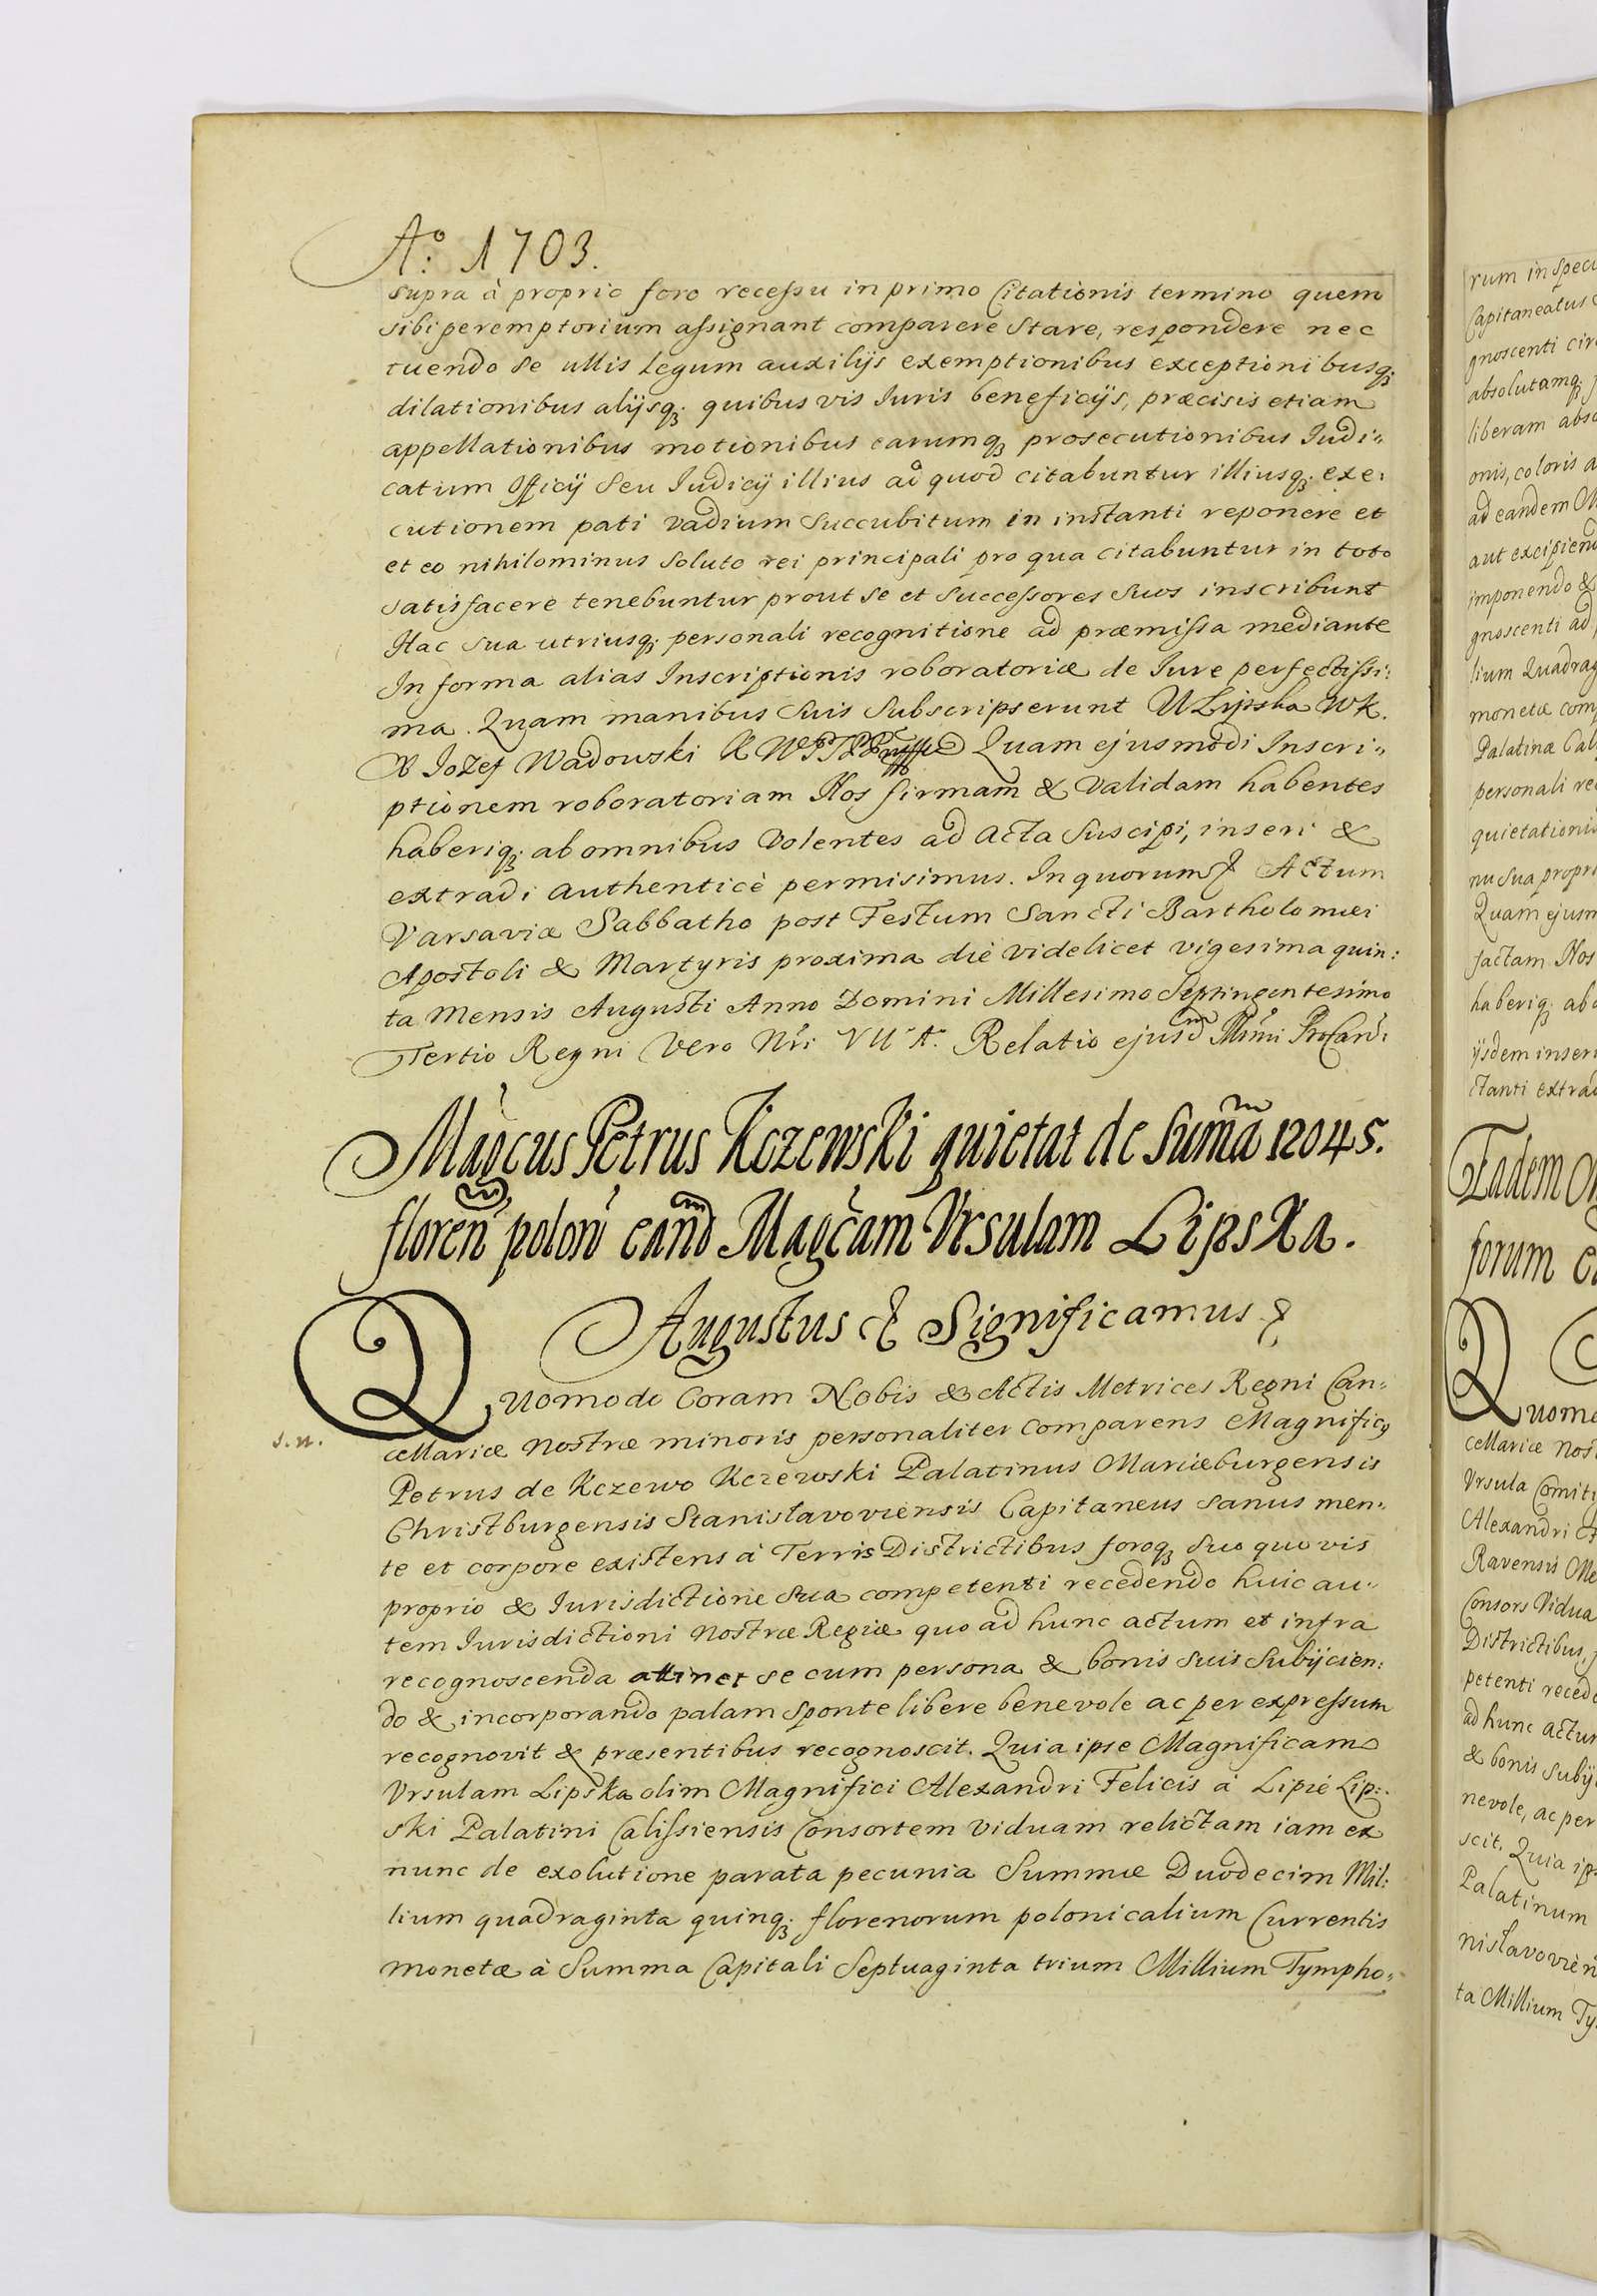 Aº: 1703.
supra à proprio foro recessu in primo Citationis termino quem
sibi peremptorium assignant comparere stare, respondere nec
tuendo se ullis Legum auxilijs exemptionibus exceptionibusq;
dilationibus alijsq; quibus vis Iuris beneficijs, præcisis etiam
appellationibus motionibus earumq; prosecutionibus Iudi„
catum Officij seu Iudicij illius ad quod citabuntur illiusq; exe:
cutionem pati vadium succubitum in instanti reponere et
et eo nihilominus soluto rei principali pro qua citabuntur in toto
satisfacere tenebuntur prout se et successores suos inscribunt
Hac sua utriusq; personali recognitione ad præmissa mediante
In forma alias Inscriptionis roboratoriæ de Iure perfectissi:
ma. Quam manibus suis subscripserunt U Lipska WK.
X Iozef Wadowski Quam ejusmodi Inscri„
ptionem roboratoriam Nos firmam & validam habentes
haberiq; ab omnibus Volentes ad Acta suscipi, inseri &
extradi authenticè permisimus. In quorum & Actum
Varsaviæ Sabbatho post Festum Sancti Bartholomæi
Apostoli & Martyris proxima die videlicet vigesima quin:
ta Mensis Augusti Anno Domini Millesimo Septingentesimo
Tertio Regni Vero Nri VII A. Relatio ejusd
Magcus Petrus Kczewski quietat de suma 12045.
floren polon eand Magcam Vrsulam Lipska.
Augustus & Significamus &
Quomodo Coram Nobis & Actis Metrices Regni Can„
s.n.
cellariæ nostræ minoris personaliter Comparens Magnificꝯ
Petrus de Kczewo Kczewski Palatinus Mariæburgensis
Christburgensis Stanislavoviensis Capitaneus sanus men„
te et corpore existens à Terris Districtibus foroq; suo quovis
proprio & Iurisdictione sua competenti recedendo huic au„
tem Iurisdictioni nostræ Regiæ quo ad hunc actum et infra
recognoscenda attinet se cum persona & bonis suis subijcien:
do & incorporando palam sponte libere benevole ac per expressum
recognovit & præsentibus recognoscit. Quia ipse Magnificam
Vrsulam Lipska olim Magnifici Alexandri Felicis à Lipie Lip:
ski Palatini Calissiensis Consortem viduam relictam iam ex
nunc de exolutione parata pecunia Summæ Duodecim Mil:
lium quadraginta quinq; florenorum polonicalium Currentis
monetæ à Summa Capitali Septuaginta trium Millium Tympho„
rum in speci
Capitaneatus
gnoscenti cir
absolutamq;
liberam abso
onis, coloris a
ad eandem M
aut excipiend
imponendo &
gnoscenti ad
lium Quadrag
monetæ com
Palatinæ Cal
personali re
quietationis
nu sua propri
Quam ejusm
factam Nos
haberiq; ab o
ijsdem inseri
ctanti extrad
Eadem
forum
Quomo
cellariæ nost
Vrsula Comiti
Alexandri
Ravensis
Consors Vidua
Districtibus,
petenti recede
ad hunc actum
& bonis subij
nevole, ac per
scit. Quia ip
Palatinum
nislavovien
ta Millium Ty